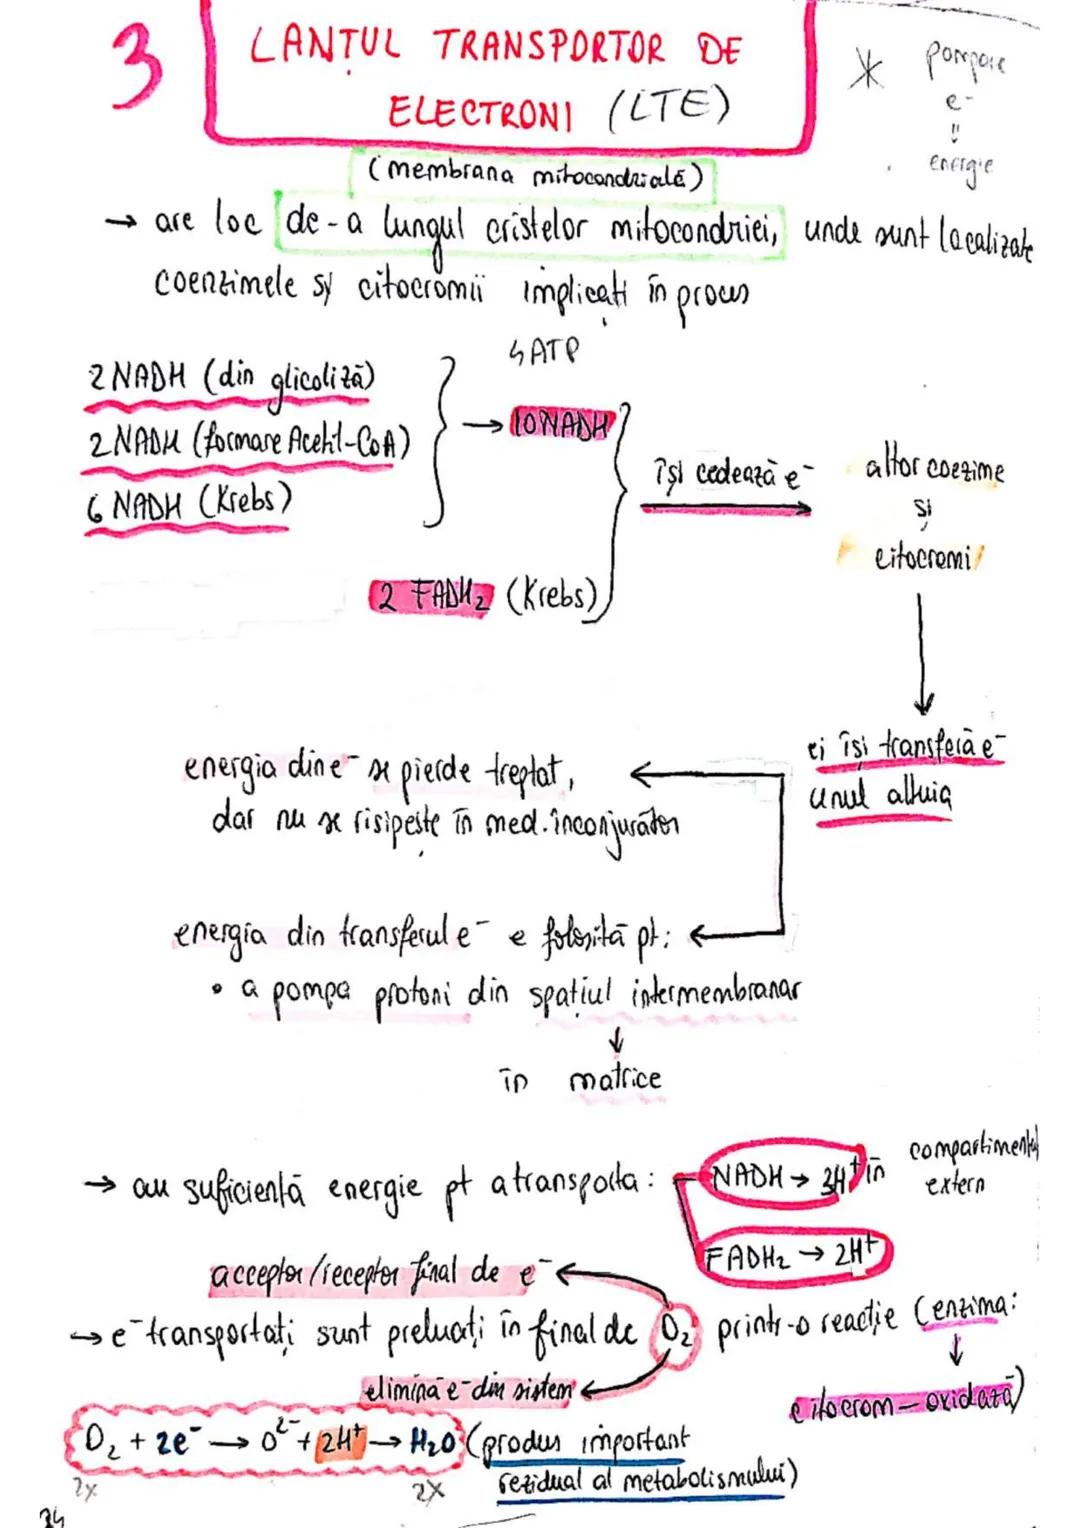 3
LANȚUL TRANSPORTOR DE
ELECTRONI (LTE)
* pompare
e-
energie
(membrana mitocondrială)
→ are loc de-a lungul cristelor mitocondriei, unde sunt localizate
coenzimele și citocromii implicați în proces
4 ATP
2 NADH (din glicoliză)
2 NADH (formare Acetil-CoA)
6 NADH (Krebs)
→ 10 NADH
2 FADH₂ (Krebs)
își cedează e⁻
altor coezime
și
citocromi
ei își transferă e⁻
unul altuia
energia din e⁻ se pierde treptat,
dar nu se risipește în med. înconjurător
energia din transferul e⁻ e folosită pt:
• a pompa protoni din spațiul intermembranar
↓
în matrice
→ au suficientă energie pt a transporta: NADH → 3H⁺ în compartimentul
extern
FADH₂ → 2H⁺
acceptor/receptor final de e⁻
→ e⁻ transportați sunt preluați în final de O₂ printr-o reacție (enzima:
↓
elimină e⁻ din sistem
citocrom-oxidază)
O₂ + 2e⁻ → O²⁻ + 2H⁺ → H₂O (produs important
rezidual al metabolismului)
2x 2x
34